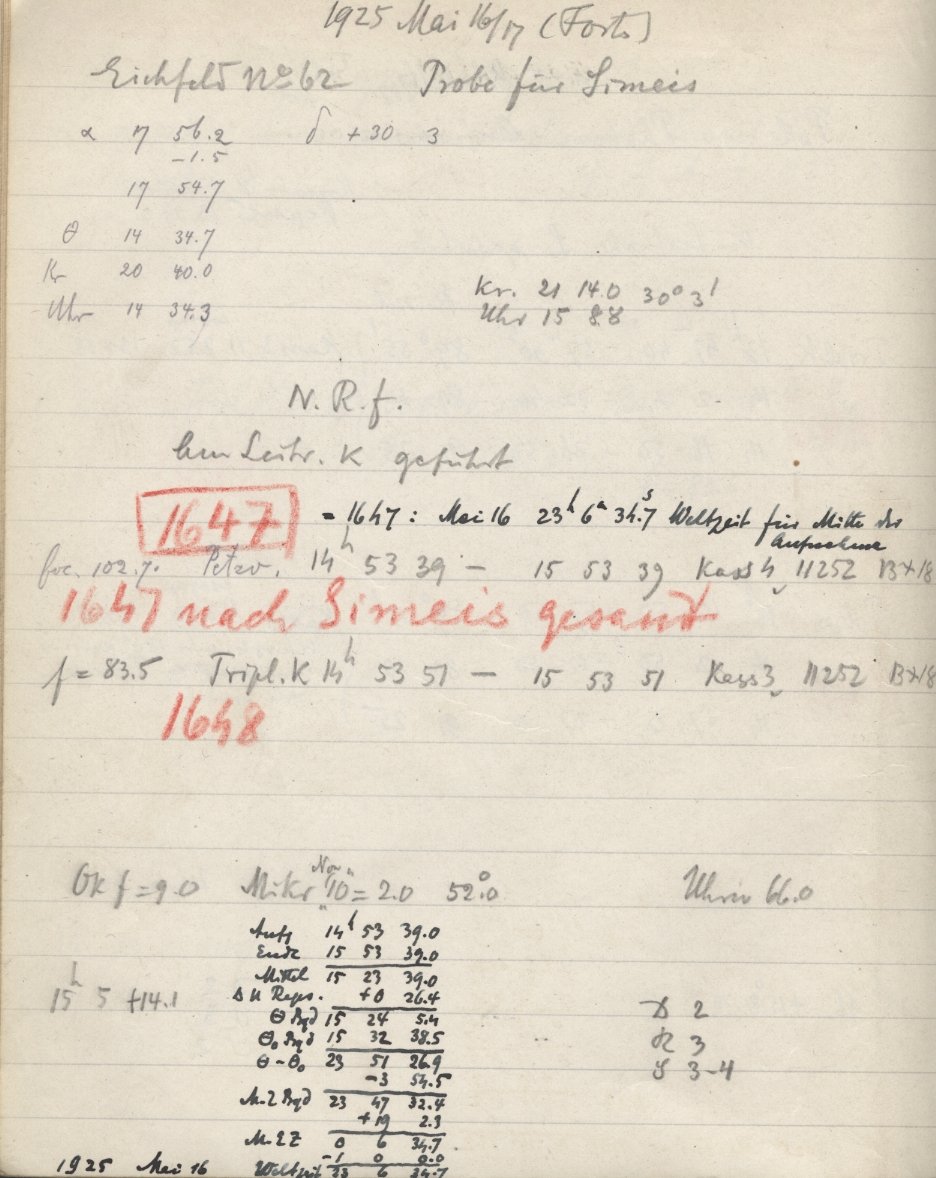 1925 Mai 16/17 (Forts)
Eichfeld No 62 Probe für Simeis
α 17 56.2 δ +30 3
-1.5
17 54.7
θ 14 34.7
Kr 20 40.0
Uhr 14 34.3
Kr. 21 14.0 30° 3'
Uhr 15 8.8
N. R. f.
am Leitr. K geführt
1647 = 1647 : Mai 16 23h 6m 34.7s Weltzeit für Mitte der
Aufnahme
foc. 102.7. Petzv. 14h 53 39 — 15 53 39 Kass 4, 11252 B+18
1647 nach Simeis gesandt
f = 83.5 Tripl. K 14h 53 51 — 15 53 51 Kass 3, 11252 B+18
1648
Ok f = 9.0 Mikr "10 = 2.0 52.0° Uhrw 66.0
Anfg 14h 53 39.0
Ende 15 53 39.0
Mittel 15 23 39.0
Δ U Reps. +0 26.4
15h 5 +14.1
θ Bgd 15 24 5.4
θ₀ Bgd 15 32 38.5
θ-θ₀ 23 51 26.9
-3 54.5
M. Z Bgd 23 47 32.4
+19 2.3
M. E Z 0 6 34.7
-1 0 0.0
1925 Mai 16 Weltzeit 23 6 34.7
D 2
R 3
S 3-4